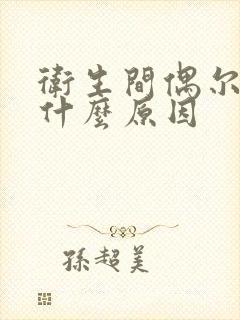 衛生間偶尔
什麼原因
孫超美